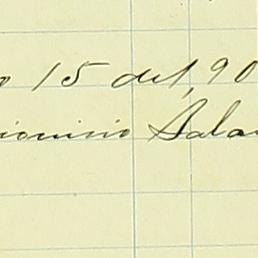 o 15 del, 90
ionisio Sala